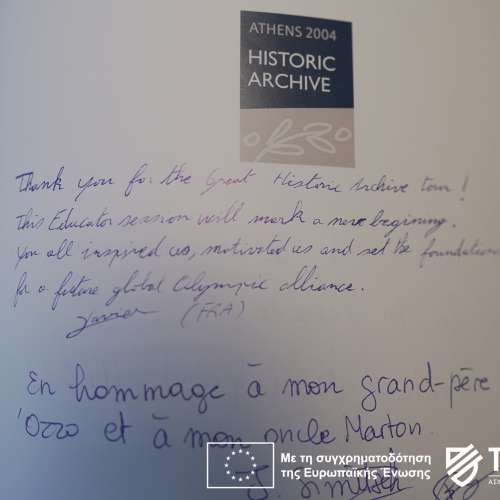 ATHENS 2004
HISTORIC
ARCHIVE
Thank you for the Great Historic Archive tour!
This Educator session will mark a new begining.
You all inspired us, motivated us and set the foundations
for a future global Olympic alliance.
(FRA)
En hommage à mon grand-père
'Ozzo et à mon oncle Marton.
Με τη συγχρηματοδότηση
της Ευρωπαϊκής Ένωσης